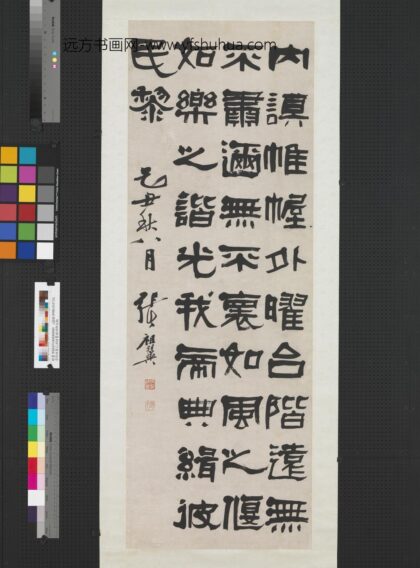 远方书画网-www.yfshuhua.com
內謨帷幄外曜台階遠無
不肅邇無不褱如風之偃
如樂之諧光我帝典緝彼
民黎 己丑秋八月 張祖翼